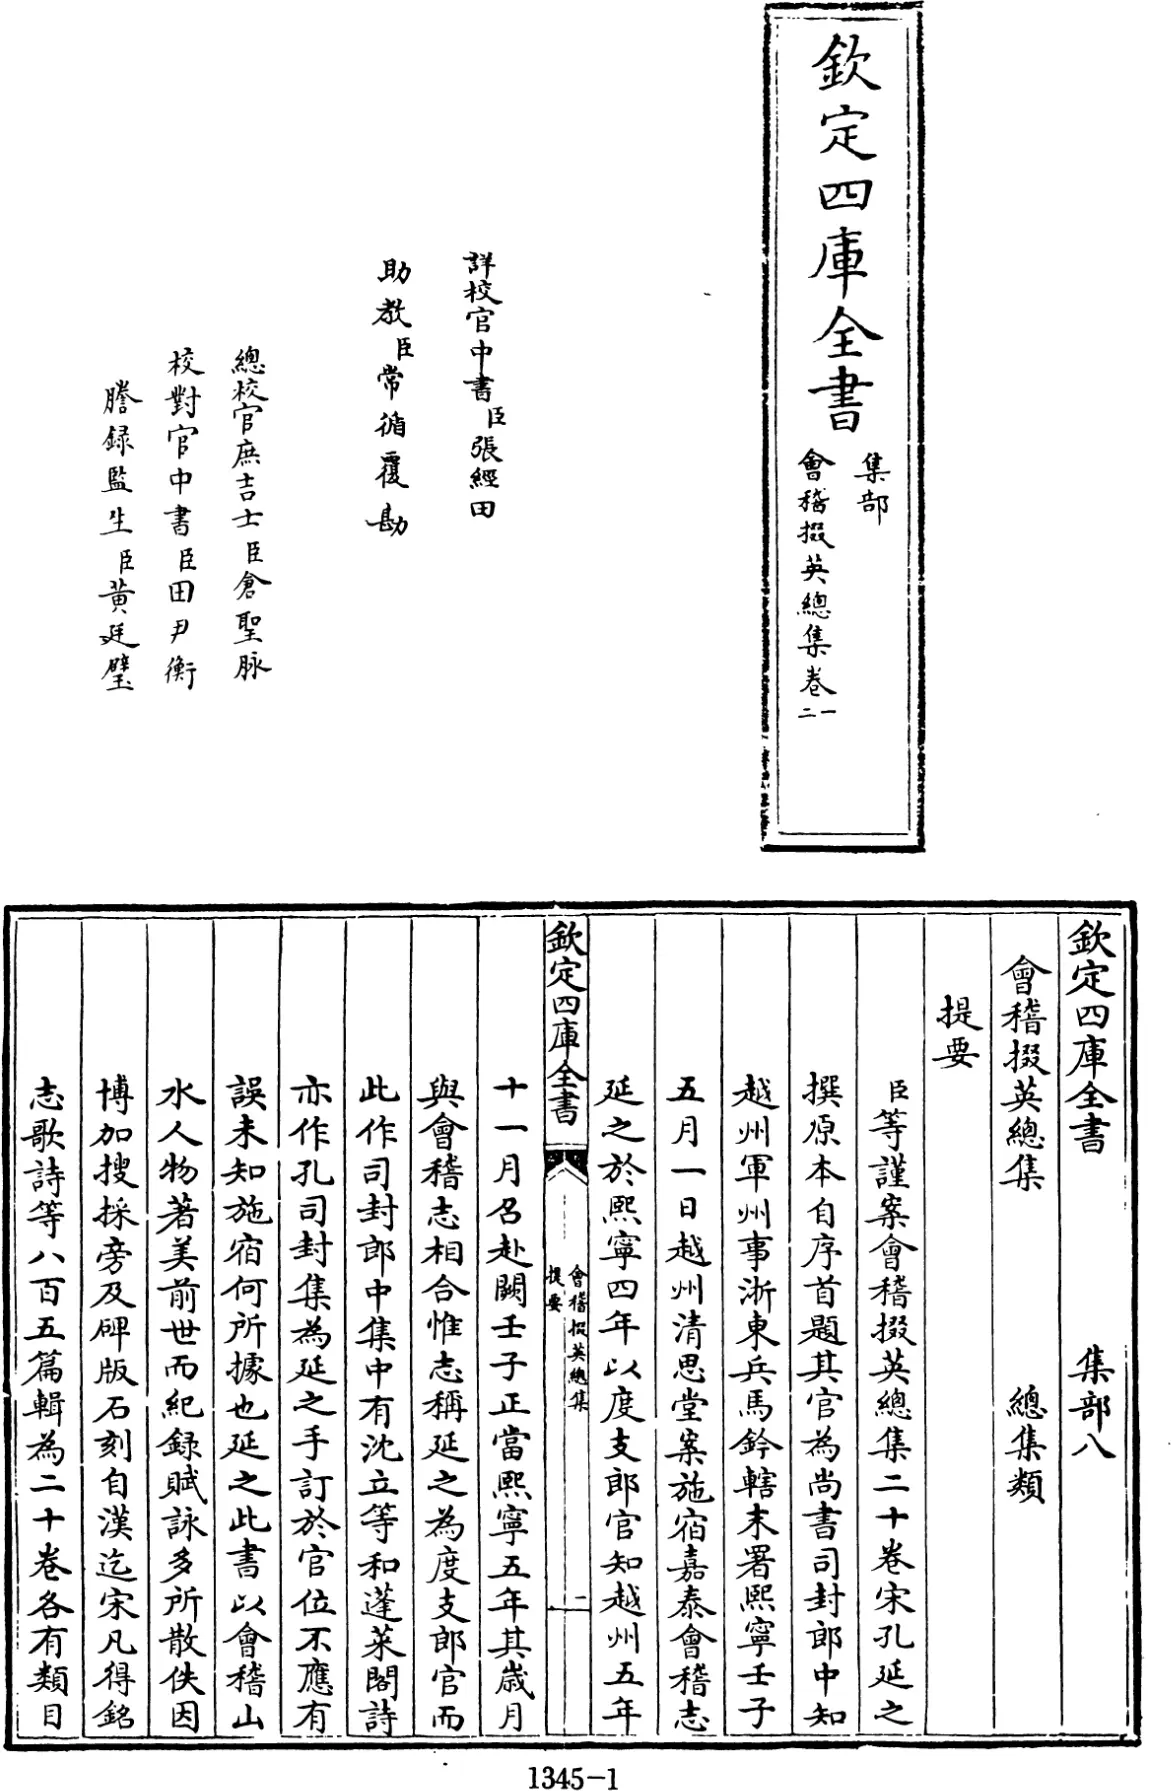 欽定四庫全書
集部
會稽掇英總集卷一
二
詳校官中書臣張經田
助教臣常循覆勘
總校官庶吉士臣倉聖脉
校對官中書臣田尹衡
謄録監生臣黄廷璧
欽定四庫全書　集部八
會稽掇英總集　總集類
提要
臣等謹案會稽掇英總集二十卷宋孔延之
撰原本自序首題其官為尚書司封郎中知
越州軍州事浙東兵馬鈐轄末署熙寧壬子
五月一日越州清思堂案施宿嘉泰會稽志
延之於熙寧四年以度支郎官知越州五年
欽定四庫全書
會稽掇英總集
提要
一
十一月名赴闕壬子正當熙寧五年其歲月
與會稽志相合惟志稱延之為度支郎官而
此作司封郎中集中有沈立等和蓬萊閣詩
亦作孔司封集為延之手訂於官位不應有
誤未知施宿何所據也延之此書以會稽山
水人物著美前世而紀録賦詠多所散佚因
博加搜採旁及碑版石刻自漢迄宋凡得銘
志歌詩等八百五篇輯為二十卷各有類目
1345-1